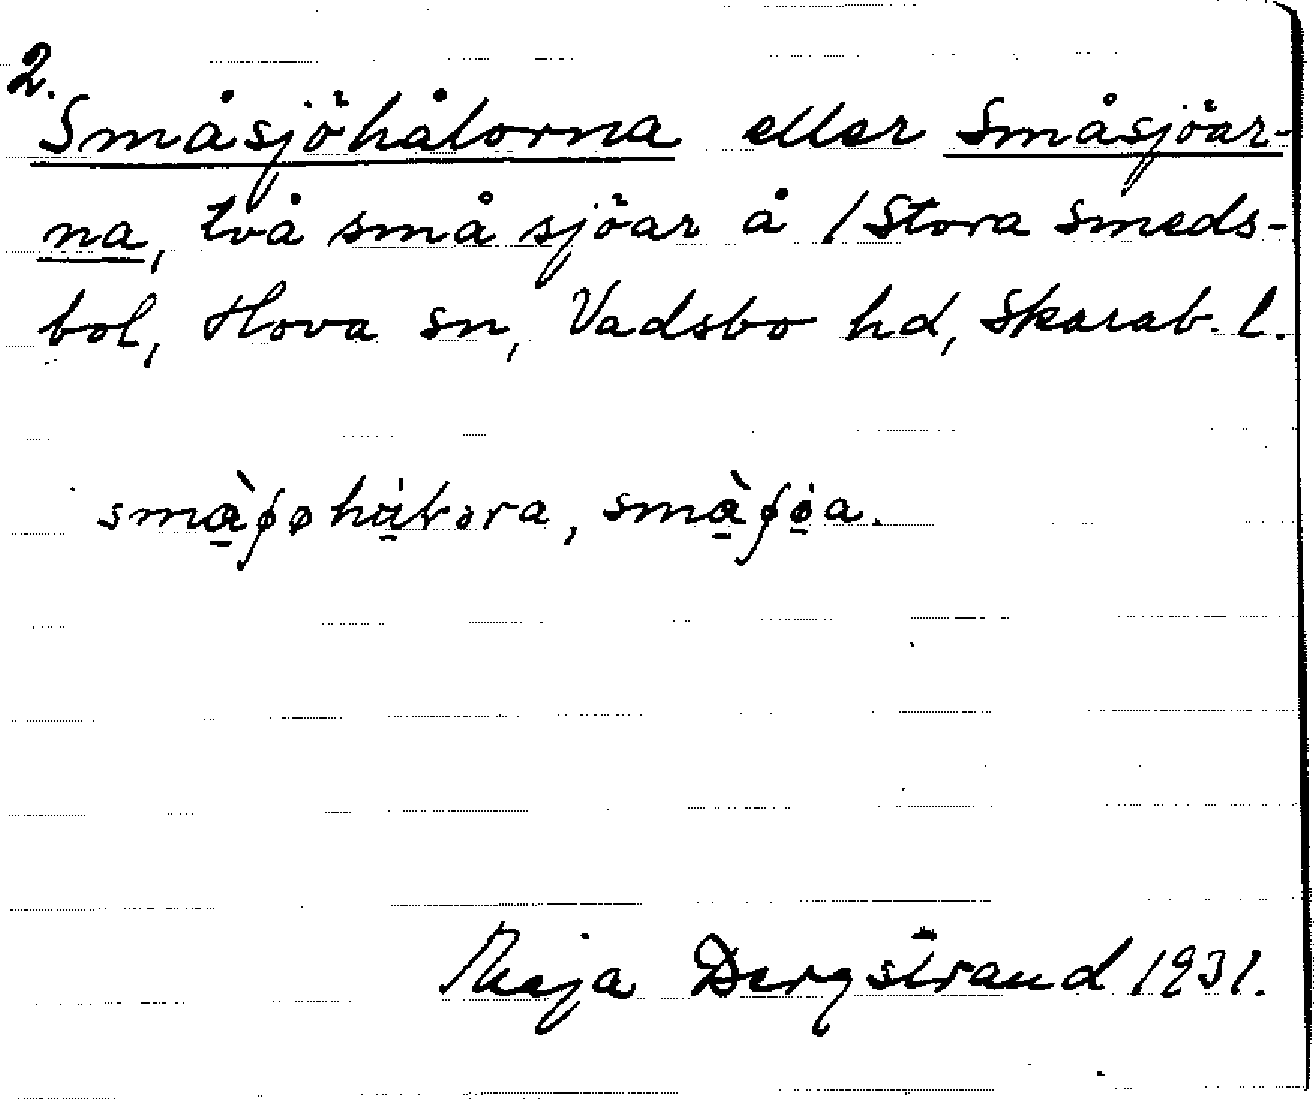 2.
Småsjöhålorna eller Småsjöar-
na, två små sjöar å /Stora Smeds-
bol, Hova sn, Vadsbo hd, Skarab. l.
Maja Bergstrand 1931.